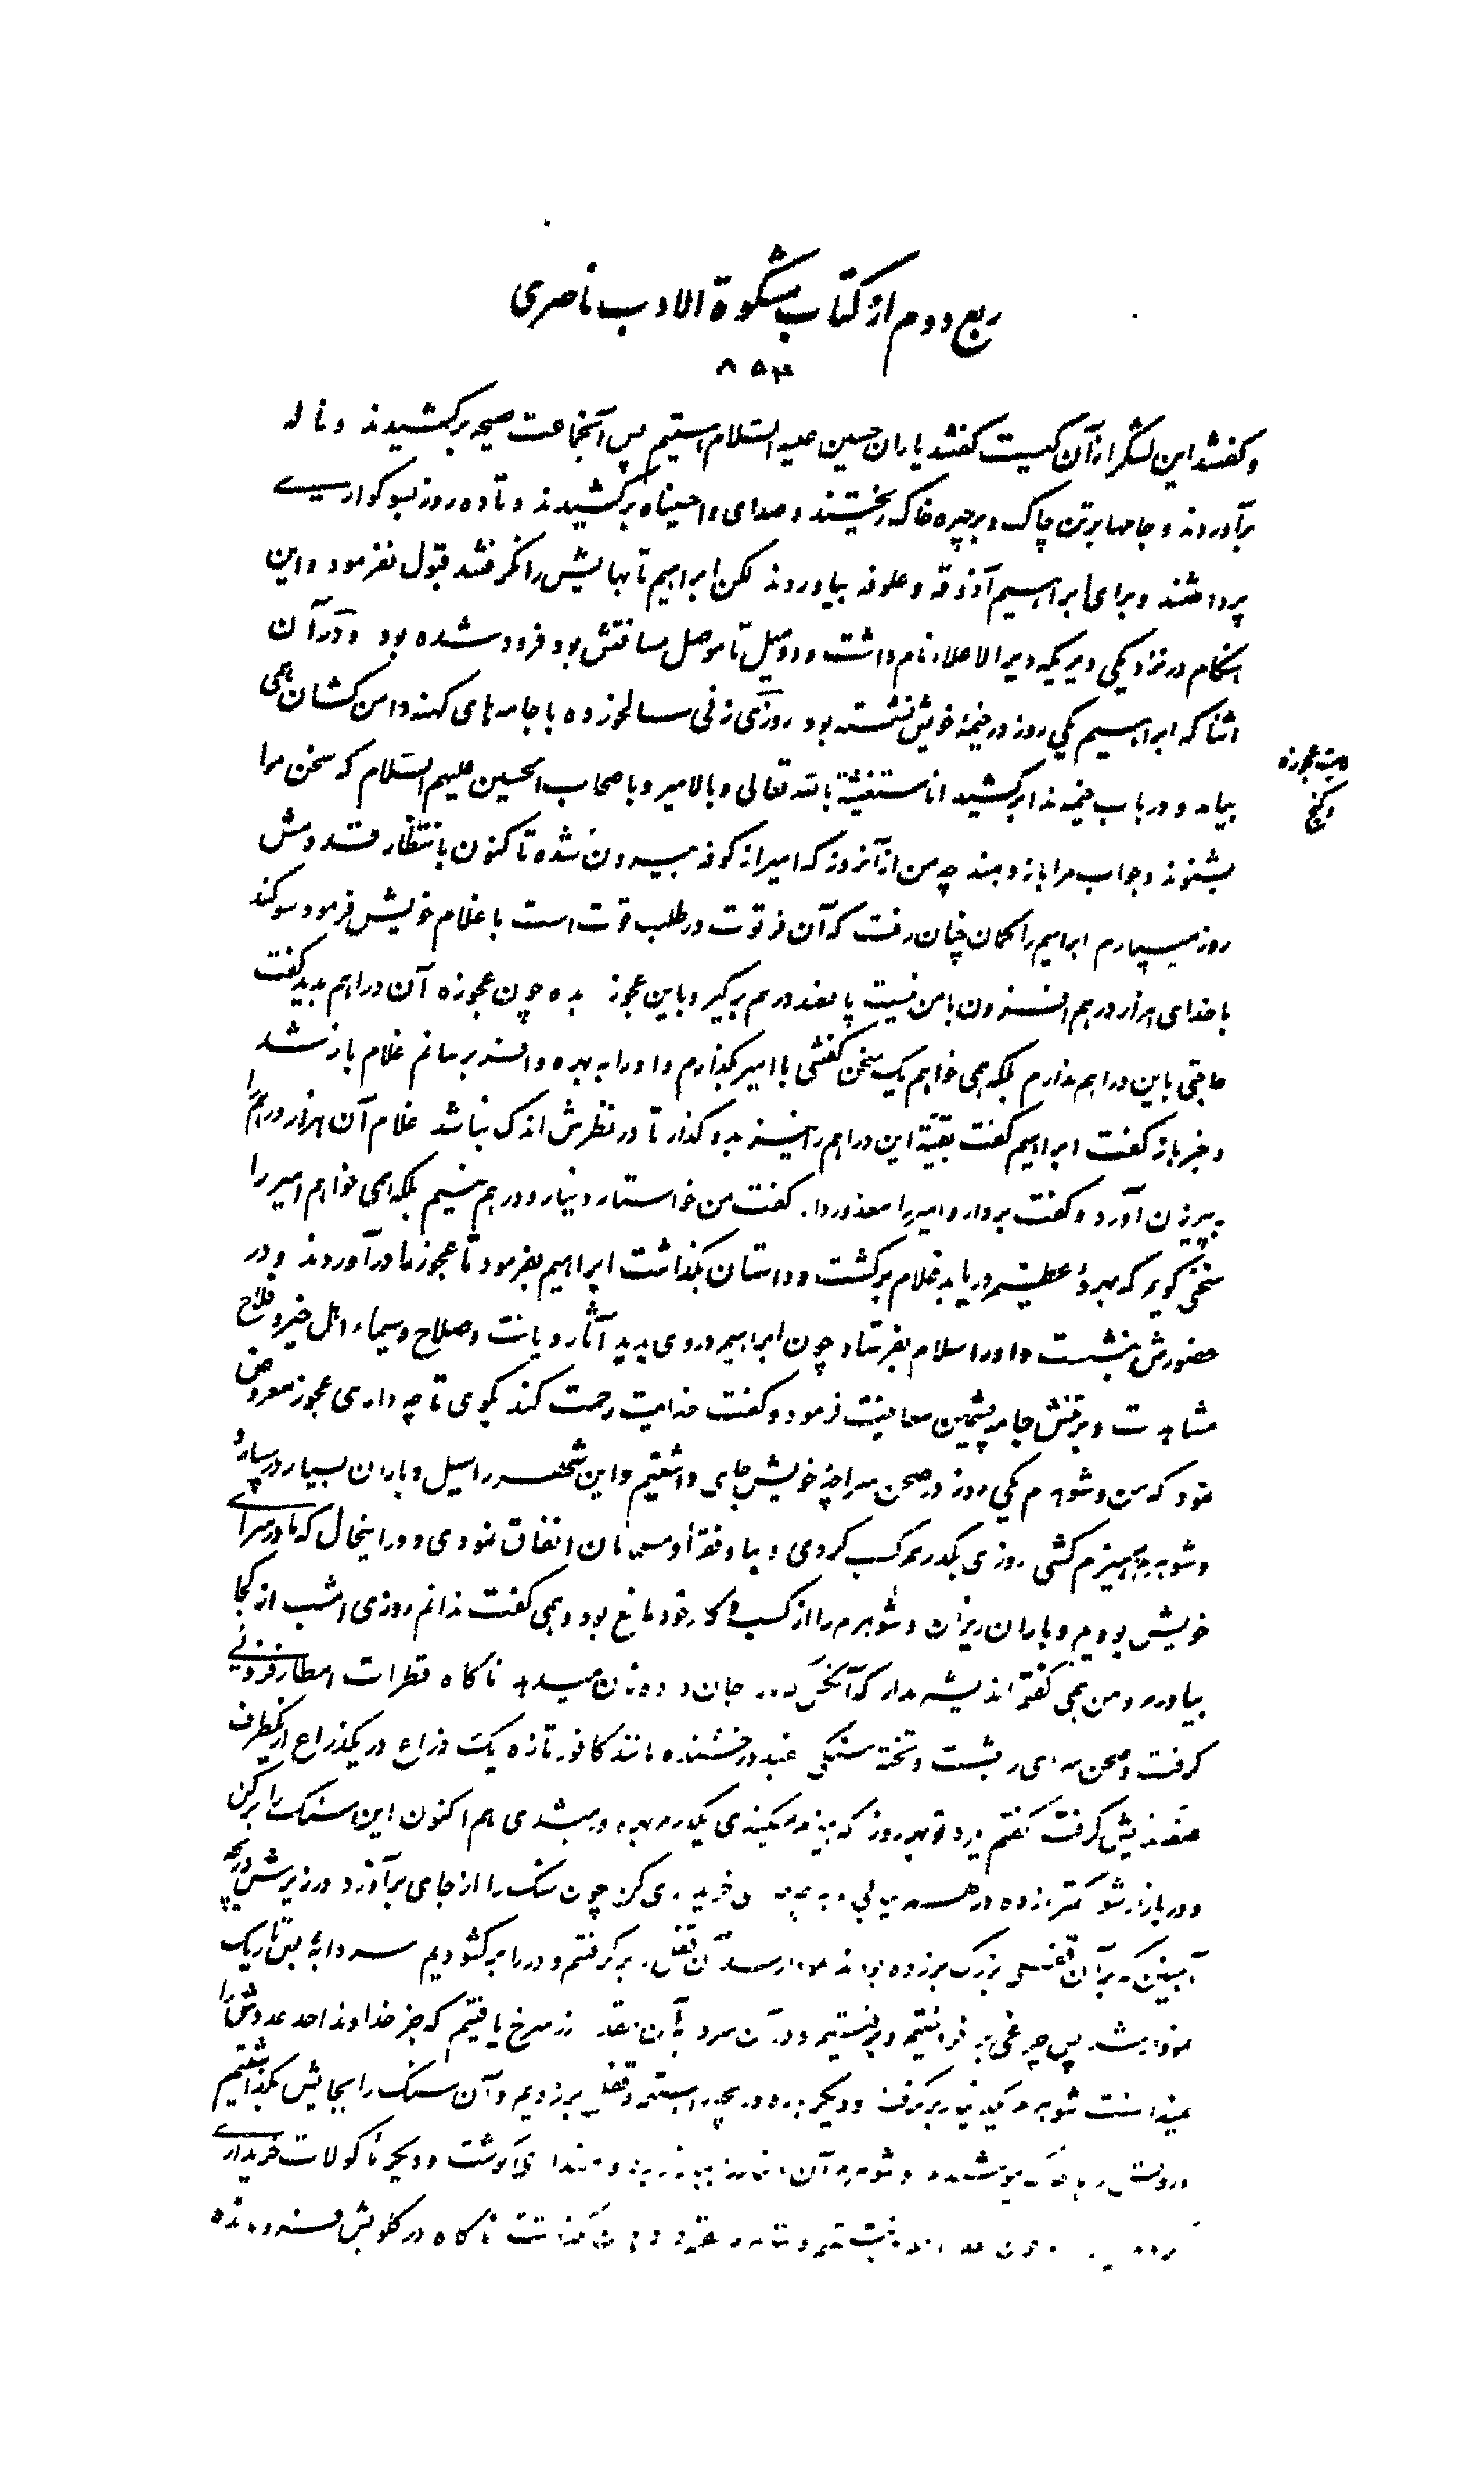 ربع دوم از کتاب مشکوة الادب ناصری
۸۵۴
و کفتند این لشکر از آن کیست کفتند یاران حسین علیه السلام استیم پس آنجماعت صیحه برکشیدند و ناله
برآوردند و جامها بر تن چاک و بر چهره خاک ریختند و صدای واحسیناه برکشیدند و تا ده روز بسوکواری
پرداختند و برای ابراهیم آذوقه و علوفه بیاوردند لکن ابراهیم تا بهایش را نکرفتند قبول نفرمود و این
هنکام در نزدیکی دیریکه دیر الاعلاء نام داشت و دو میل تا موصل مسافتش بود فرود شده بود و در آن
اثنا که ابراهیم یکی روز در خیمهٔ خویش نشسته بود روزی زنی سالخورده با جامه های کهنه دامن کشان همی
بیامد و در باب خیمه ندا برکشید انا مستغیثة بالله تعالی و بالامیر و باصحاب الحسین علیهم السلام که سخن مرا
بشنوند و جواب مرا باز دهند چه من از آنروز که امیر از کوفه بیرون شده تا کنون بانتظار قدومش
روز میسپارم ابراهیم را کمان چنان رفت که آن فرتوت در طلب قوت است با غلام خویش فرمود سوکند
با خدای هزار درهم افزون با من نیست پانصد درهم برکیر و باین عجوز بده چون عجوزه آن دراهم بدید کفت
حاجتی باین دراهم ندارم بلکه همی خواهم یک سخن کفتنی با امیر بکذارم و او را به بهره وافر برسانم غلام باز شد
و خبر باز کفت ابراهیم کفت بقیّهٔ این دراهم را نیز بدو کذار تا در نظرش اندک نباشد غلام آن هزار درهم را
به پیرزن آورد و کفت بردار و امیر را معذور دار کفت من خواستار دینار و درهم نیستم بلکه همی خواهم امیر را
سخنی کویم که بهرهٔ عظیم دریابد غلام برکشت و داستان بکذاشت ابراهیم بفرمود تا عجوز را درآوردند و در
حضورش بنشست و او را سلام بفرستاد چون ابراهیم در وی بدید آثار دیانت و صلاح و سیماء اهل خیر و فلاح
مشاهدت و بر تنش جامه پشمین معاینت فرمود و کفت خدایت رحمت کند بکوی تا چه داری عجوز معروض
نمود که من و شوهرم یکی روز در صحن سراچهٔ خویش جای داشتیم و این شهر را سیل و باران بسیار در سپارد
و شوهرم بهیزم کشی روزی یکدرهم کسب کردی و با فقرا و مسلمانان انفاق نمودی و در اینحال که ما در سرای
خویش بودیم و باران ریزان و شوهرم را از کسب و کار خود مانع بود و همی کفت ندانم روزی امشب از کجا
بیاورم و من همی کفتم اندیشه مدار که آنکس که جان داده نان میدهد ناکاه قطرات امطار فزونی
کرفت و صحن سرای را بشست و تخته سنکی سفید درخشنده مانند کافور تازه یک ذراع در یکذراع از یکطرف
کرفت کفتم ای مرد تو هر روز که هیزم میکندی یکدرهم بهره ور میشدی هم اکنون این سنک را برکن
و در بازار شو چون سنک را از جای برآورد در زیرش دریچه
آهنین که بر آن قفلی بزرک برزده بودند آن قفل برکرفتم و در را برکشودیم سردابهٔ بس تاریک
نمودار شد پس چراغی بر فروختیم و در آن سردابه آن مقدار زر سرخ یافتیم که جز خداوند احد عددش را
نمیدانست شوهرم یکدینار برکرفت و دیکر باره دریچه را بسته و قفل برزدیم و آن سنک را بجایش بکذاشتیم
و رویش را با خاک بپوشیدیم و شوهرم آن دینار زر ببازار برد و مقداری کوشت و دیکر ماکولات خریداری
ناکاه در کلویش فرو مانده
حدیث عجوزه
و کنج